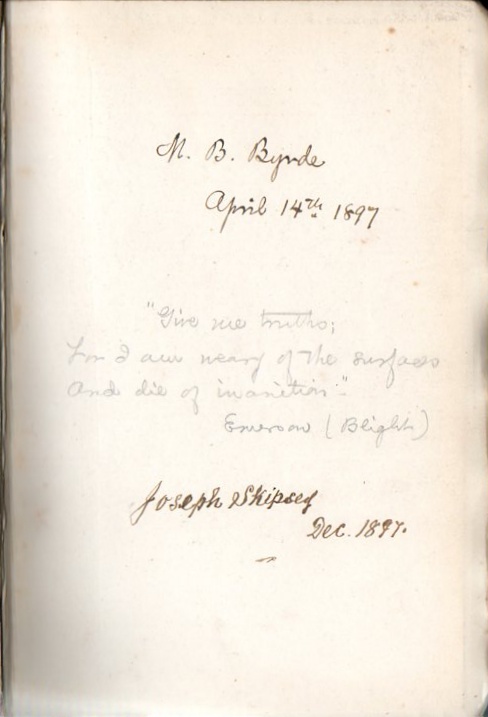 M. B. Byrde
April 14th 1897
"Give me truths;
For I am weary of the surfaces
And die of inanition."
Emerson (Blight)
Joseph Skipsey
Dec. 1897.